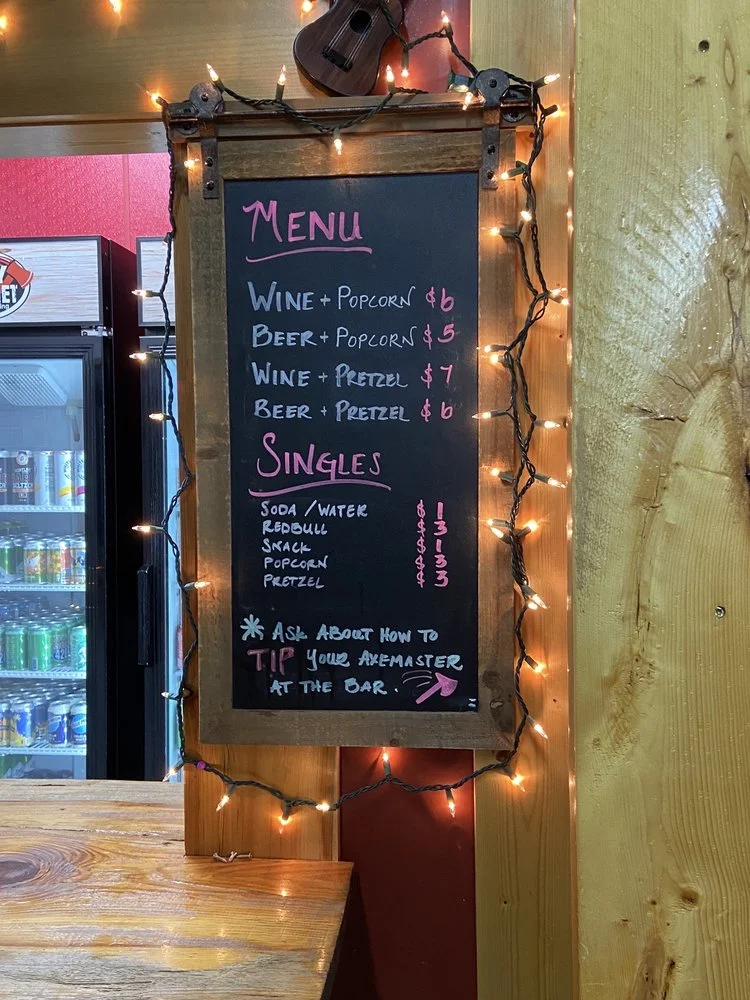 MENU
WINE + POPCORN $6
BEER + POPCORN $5
WINE + PRETZEL $7
BEER + PRETZEL $6
SINGLES
SODA / WATER $1
REDBULL $3
SNACK $1
POPCORN $3
PRETZEL $3
* ASK ABOUT HOW TO
TIP YOUR AXEMASTER
AT THE BAR.